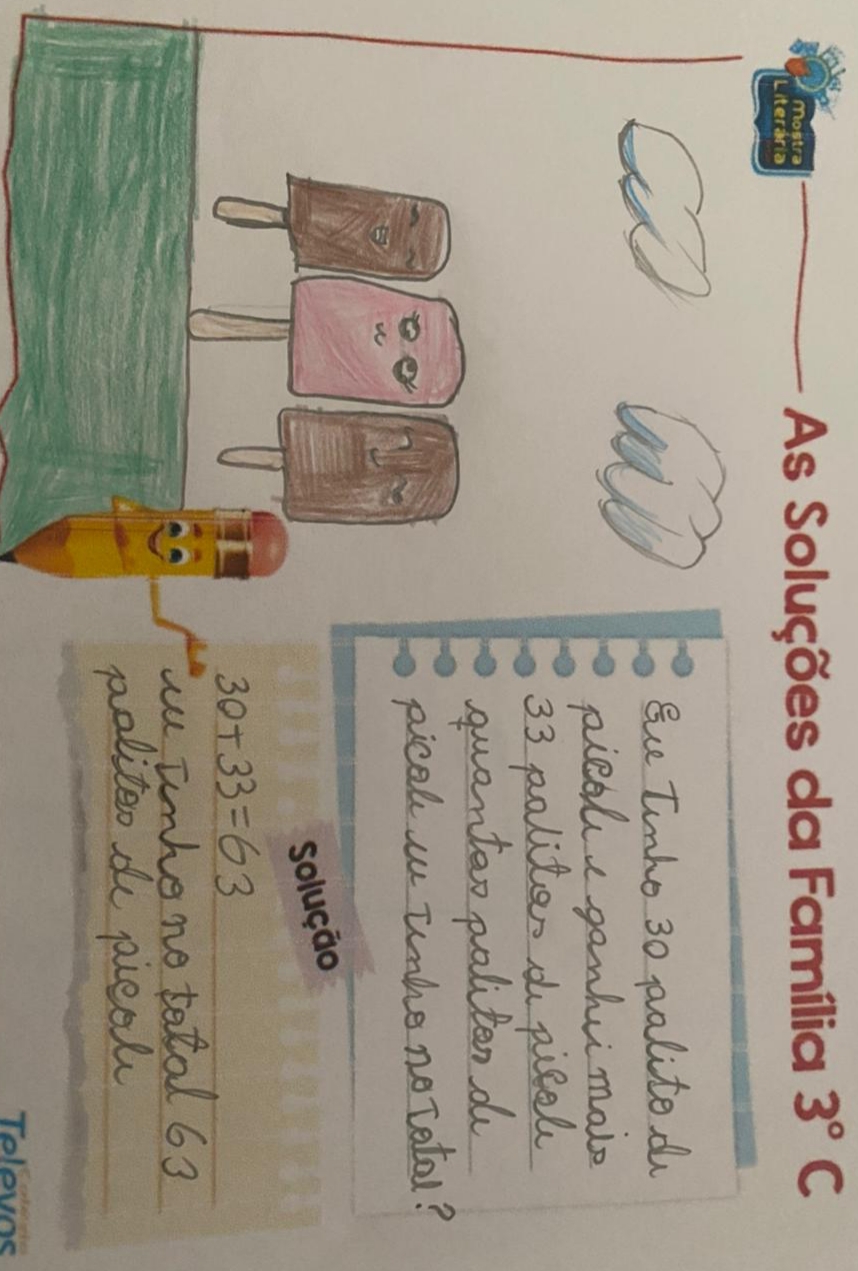 Mostra
Literária
As Soluções da Família 3° C
Eu Tinho 30 palito de
picole e ganhei mais
33 palitos de picole
quantos palitos de
picole eu Tinho no Total?
Solução
30+33=63
eu Tinho no total 63
palitos de picole